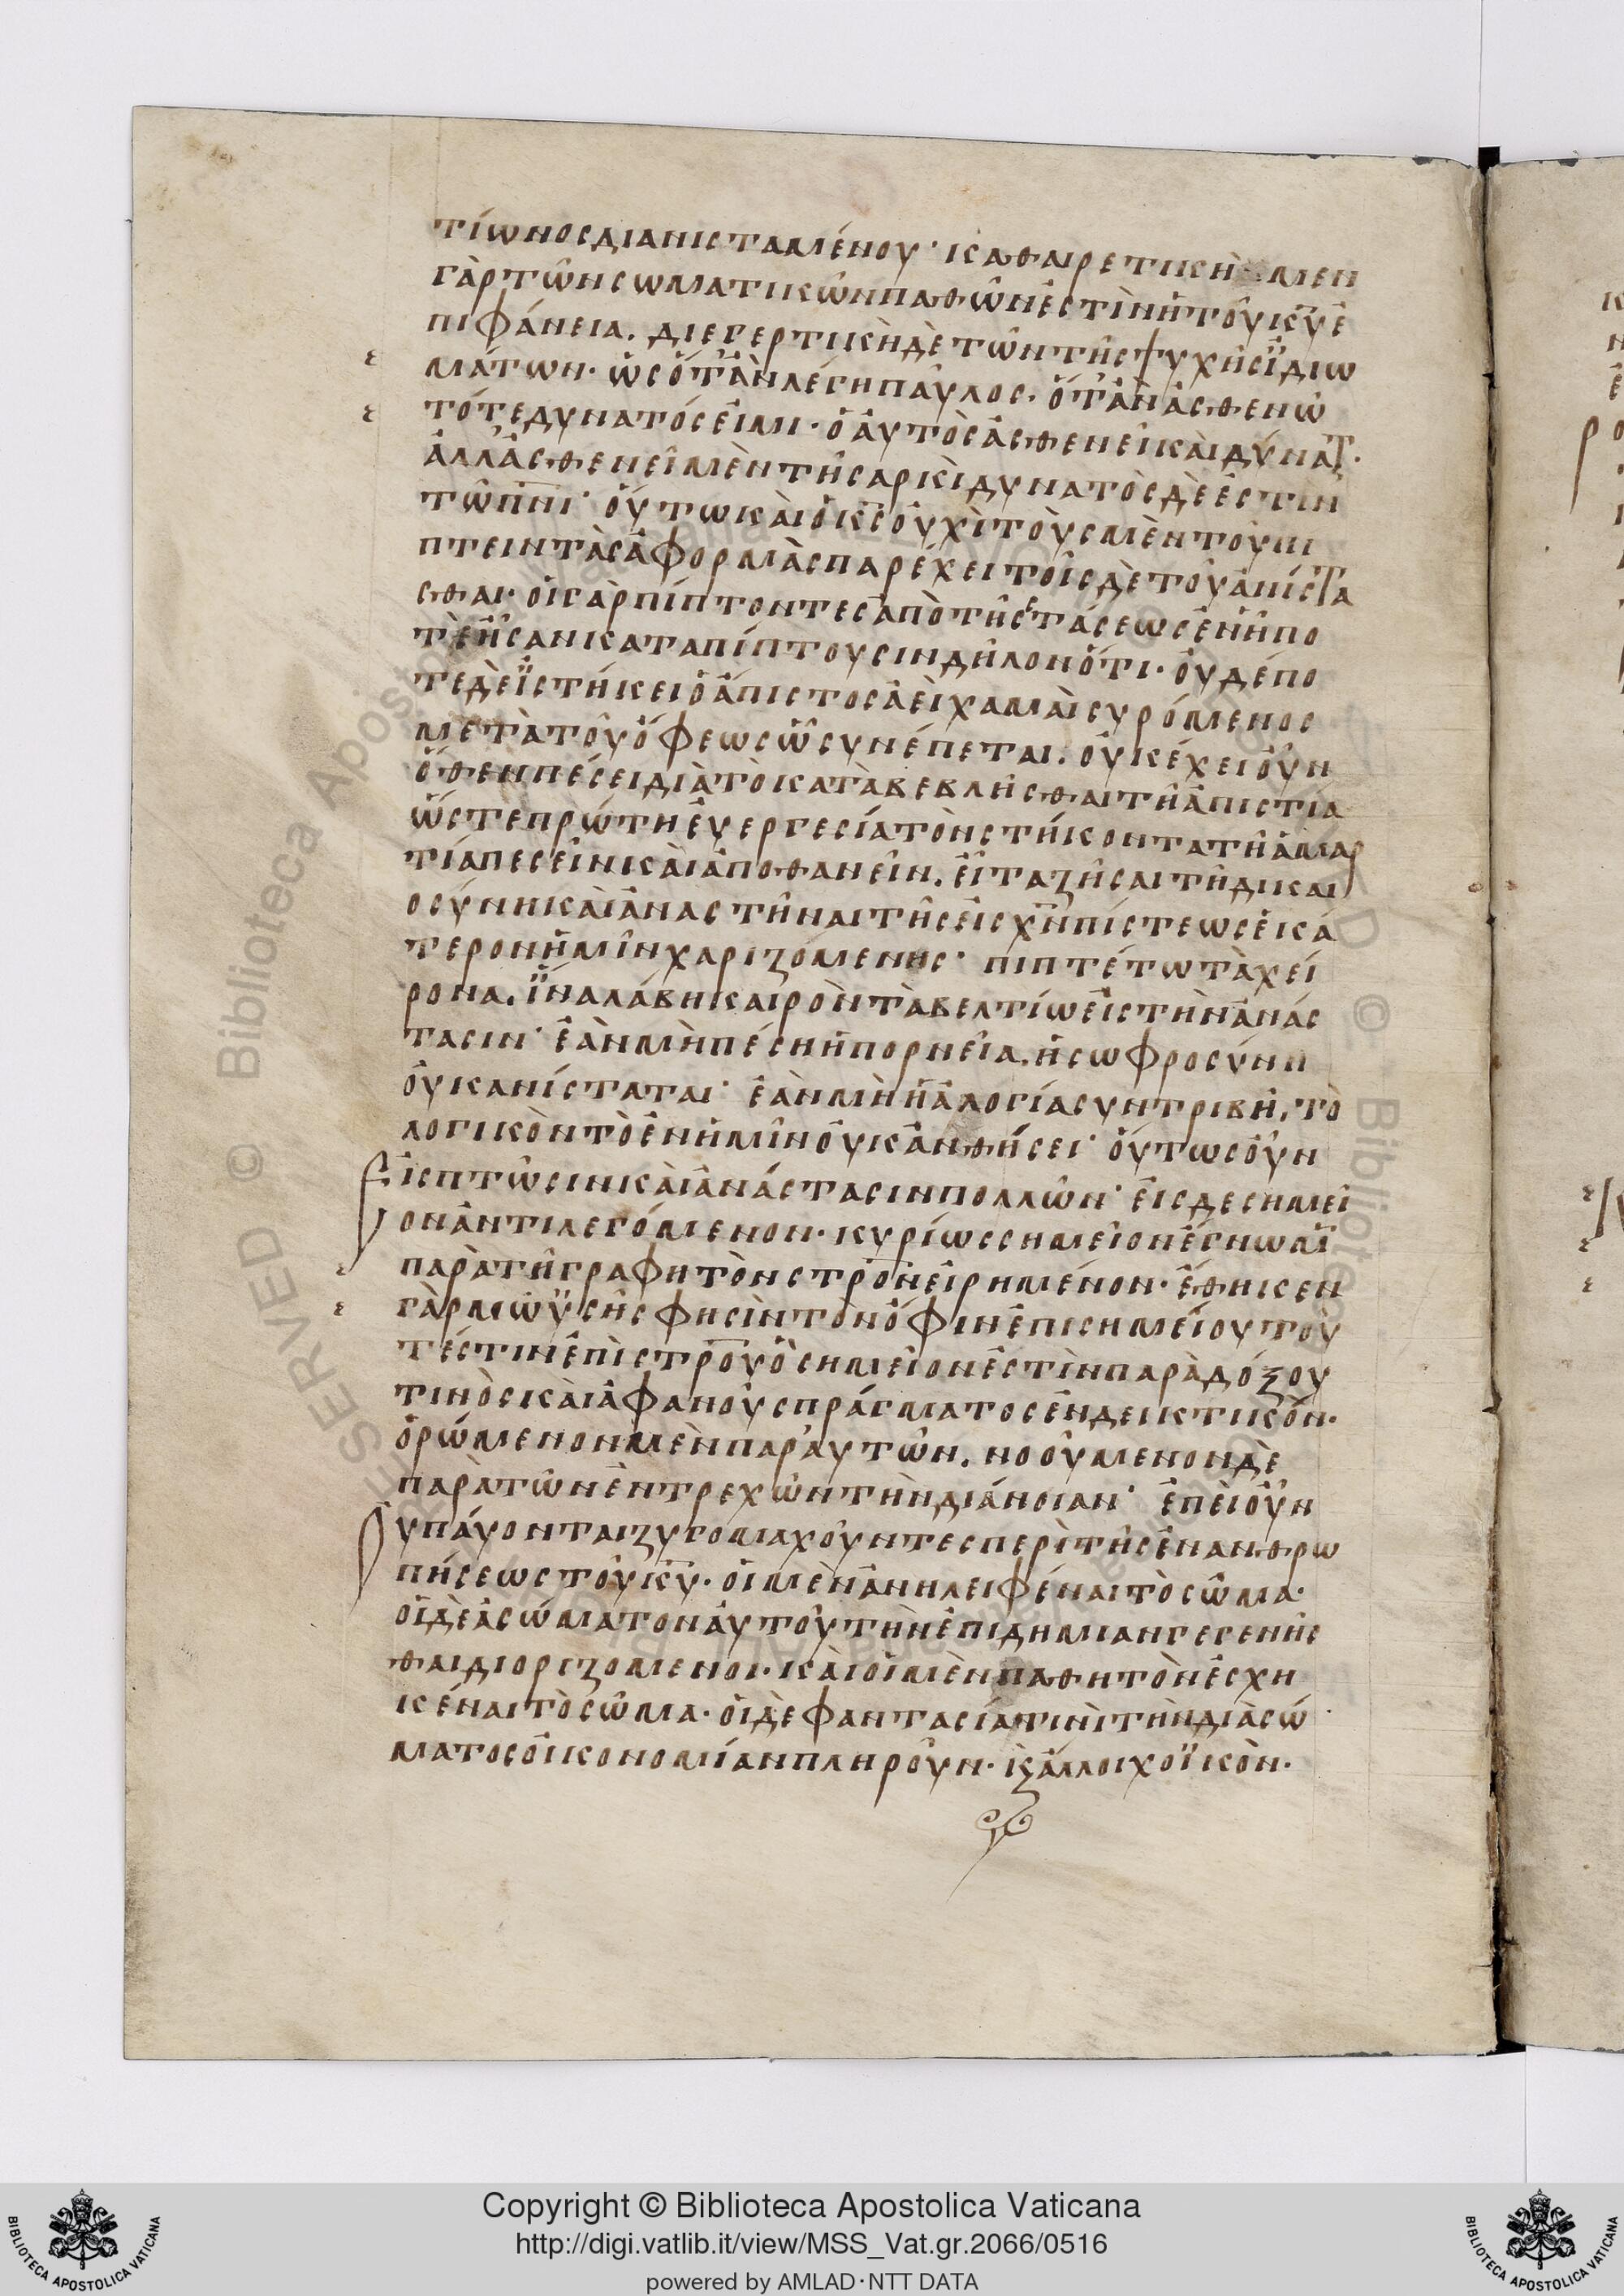 τίωνος διανισταμένου· καθαιρετικὴ μὲν
γὰρ τῶν σωματικῶν παθῶν ἐστὶν ἡ τοῦ κ̅υ̅ ἐ
πιφάνεια. διεγερτικὴ δὲ τῶν τῆς ψυχῆς ϊδιω
μάτων. ὡς ὅτ' ἂν λέγη παῦλος. ὅτ' ἂν ἀσθενῶ
τότε δυνατός εἰμι· ὁ αὐτὸς ἀσθενεῖ καὶ δύνατ.
ἀλλ' ἀσθενεῖ μὲν τῆ σαρκὶ δυνατὸς δὲ ἐστιν
τῶ π̅ν̅ι̅· οὕτω καὶ ὁ κ̅ς̅ οὐχὶ τοὺς μὲν τοῦ πι
πτειν τὰς ἀφορμὰς παρέχει τοῖς δὲ τοῦ ἀνίστα
σθαι. οἱ γὰρ πίπτοντες ἀπὸ τῆς στάσεως ἐν ἧ πο
τὲ ἦσαν καταπίπτουσιν δῆλον ὅτι. οὐδέπο
τε δὲ ϊστήκει ὁ ἄπιστος ἀεὶ χαμαὶ συρόμενος
μετὰ τοῦ ὄφεως ὧ συνέπεται. οὐκ ἔχει οὖν
ὅθεν πέσει διὰ τὸ καταβεβλῆσθαι τῆ ἀπιστία
ὥστε πρώτη ἐυεργεσία τὸν στήκοντα τῆ ἁμαρ
τία πεσεῖν καὶ ἀποθανεῖν. εἶτα ζῆσαι τῆ δικαι
οσύνη καὶ ἀναστῆναι τῆς εἰς χ̅ν̅ πίστεως ἑκά
τερον ἡμῖν χαριζόμενης· πιπτέτω τὰ χεί
ρονα. ϊνα λάβη καιρὸν τὰ βελτίω εἰς τὴν ἀνάσ
τασιν· ἐὰν μὴ πέση ἡ πορνεῖα. ἡ σωφροσύνη
οὐκ ανίσταται· ἐὰν μὴ ἡ ἀλογία συντριβῆ, τὸ
λογικὸν τὸ ἐν ἡμῖν οὐκ ἀνθήσει· οὕτως οὖν
εἰς πτῶσιν καὶ ἀνάστασιν πολλῶν· εἰς δε σημεῖ
ον ἀντιλεγόμενον. κυρίως σημεῖον ἔγνωμ̅
παρὰ τῆ γραφη τὸν στρ̅ο̅ν̅ εἰρημένον. ἔθηκεν
γὰρ μωϋσῆς φησὶν τὸν ὄφιν ἐπι σημείου του
τέστιν ἐπὶ στρ̅ο̅υ̅ ὃ σημεῖον ἐστὶν παραδόξου
τινὸς καὶ ἀφανοῦς πράγματος ἐνδεικτικὸν.
ὁρώμενον μὲν παρ' αυτῶν. νοούμενον δὲ
παρὰ τῶν ἐντρεχῶν τὴν διάνοιαν· ἐπεὶ οὖν
υπάυονται ζυγομαχοῦντες περὶ τῆς ἐνανθρω
πήσεως τοῦ κ̅υ̅. οἱ μὲν ἀνηλειφέναι τὸ σῶμα.
οἱ δὲ ἀσώματον ἀυτοῦ τὴν ἐπιδημίαν γεγενῆς
θαι διοριζομενοι. καὶ οἱ μὲν παθητὸν ἐσχη
κέναι τὸ σῶμα. οἱ δὲ φαντασία τινὶ τὴν διὰ σώ
ματος οἰκονομίαν πληροῦν. κ̀ ἄλλοι χοϊκὸν.
Copyright © Biblioteca Apostolica Vaticana
http://digi.vatlib.it/view/MSS_Vat.gr.2066/0516
powered by AMLAD·NTT DATA